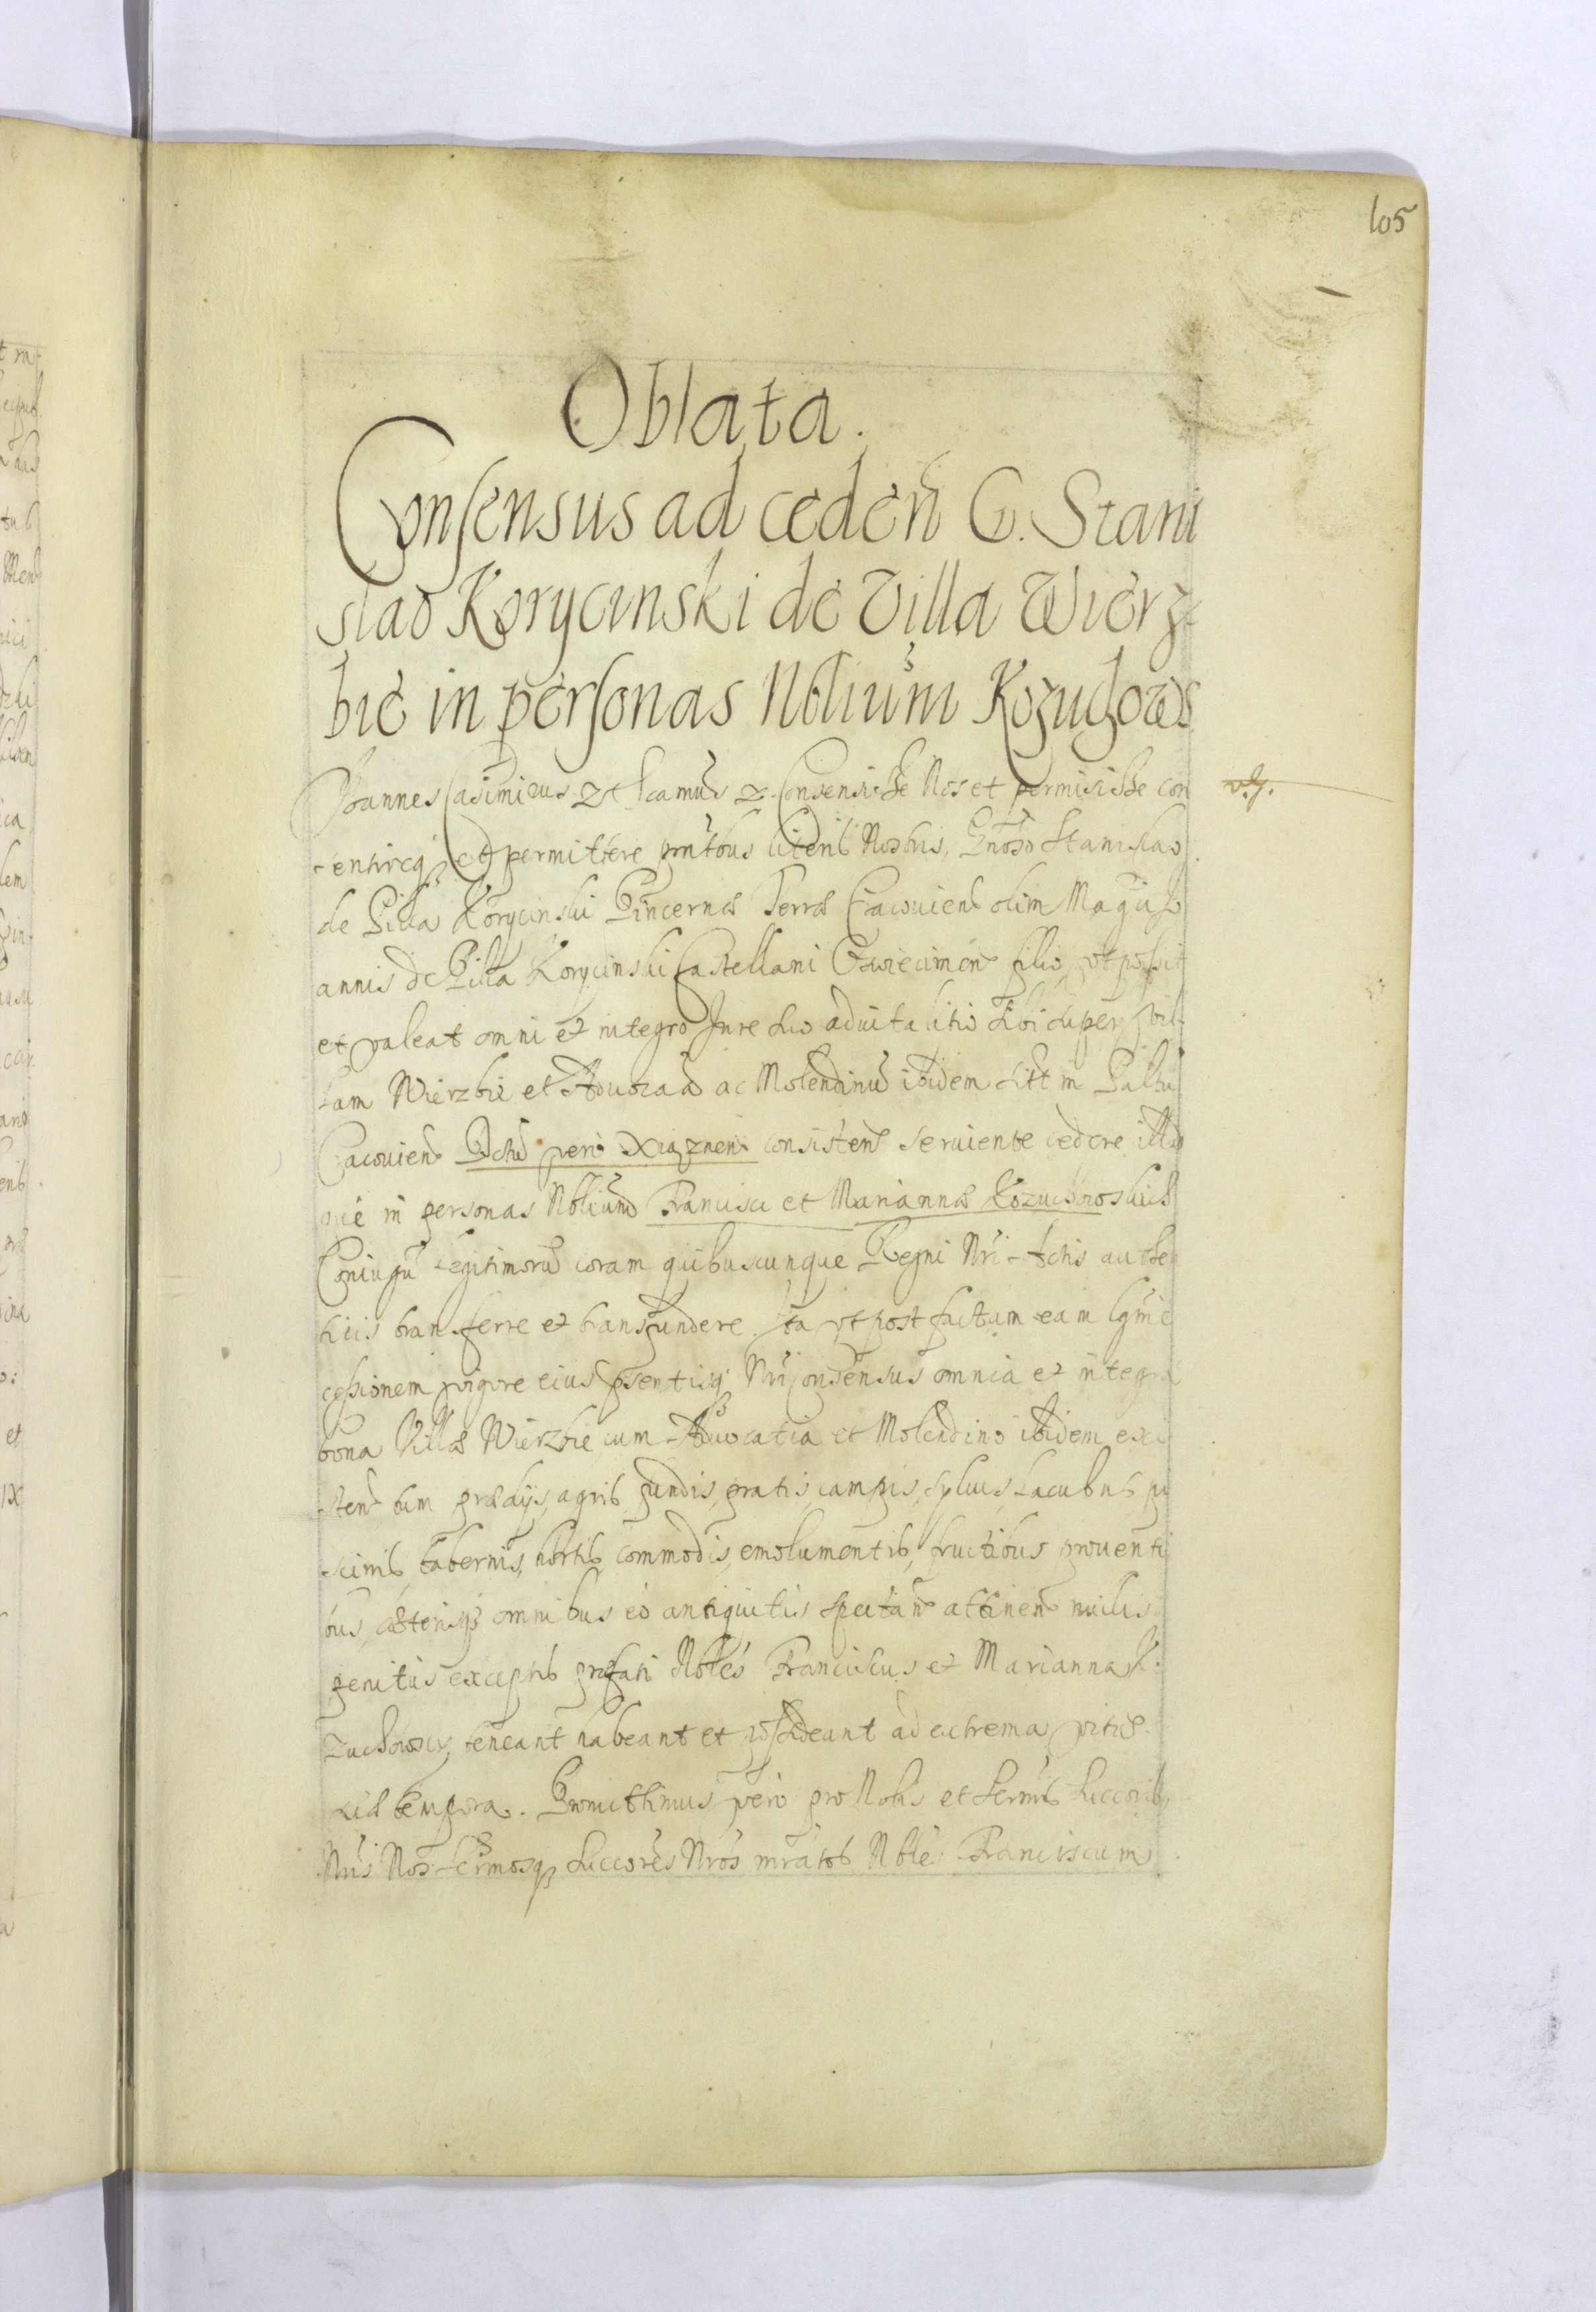 105
Oblata.
Consensus ad ceden̄ G. Stani
slao Korycinski de Villa Wierz-
bie in personas Nbliūm Kozuchows
Joannes Casimirus & Scamus & Consensisse Nos et permisisse con
sentireq3 et permittere pntbus literis Nostris, Gnoso Stanislao
de Pilca Korycinski Pincernæ Terræ Cracovien olim Magci Jo
annis de Pilca Korycinski Castellani Oswiecimen filio, vt possit
et valeat omni et integro Jure suo aduitalitio sibi super vil-
lam Wierzbie et Aduocatiā ac Molendinū ibidem sitt in Palttu
Cracovien Dctu vero Xiąznen consisten seruiente cedere illud
que in personas Nbliūm Francisci et Mariannæ Kozuchowskich
Coniugū legitimorū coram quibuscunque Regni Nri Actis authe
ticis transferre et transfundere. Ita vt post factam eam lgmē
cessionem vigore eius psentisq3 Nri Consensus omnia et integra
bona Villæ Wierzbie cum Aduocatia et Molendino ibidem exi
sten tum prædijs, agris, fundis, pratis, campis, syluis, Lacubus, pi
scinis, tabernis, hortis, commodis, emolumentis, fructibus, prouenti
bus, cæterisq3 omnibus eo antiquitus spectan attinen nullis
penitus exceptis præfati Nbles Franciscus et Marianna Ko
zuchowscy teneant habeant et possideant ad extrema vitæ
suæ tempora. Promittimus vero pro Nobis et Sermis Succorib
Nris Nos Sermosq3 Succores Nros mratos Nbles Franciscum